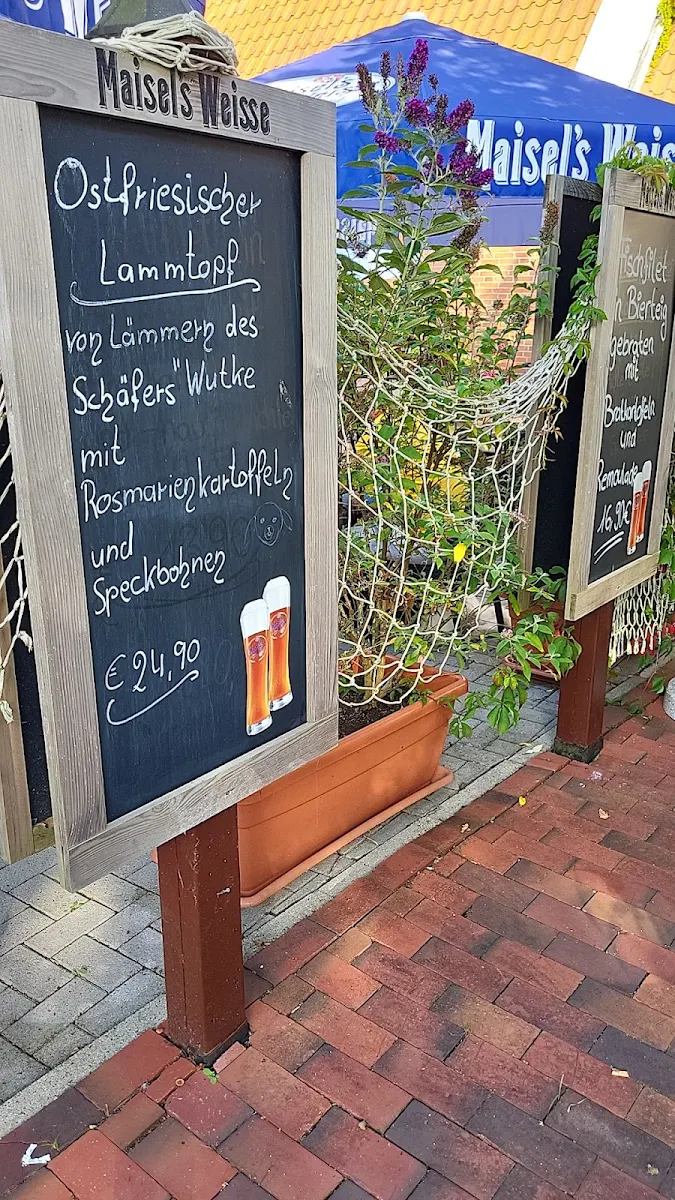 Maisel's Weisse
Ostfriesischer
Lammtopf
von Lämmern des
Schäfers "Wutke
mit
Rosmarienkartoffeln
und
Speckbohnen
€ 24,90
Maisel's Weiss
Fischfilet
in Bierteig
gebraten
mit
Bratkartoffeln
und
Remoulade
16,90€